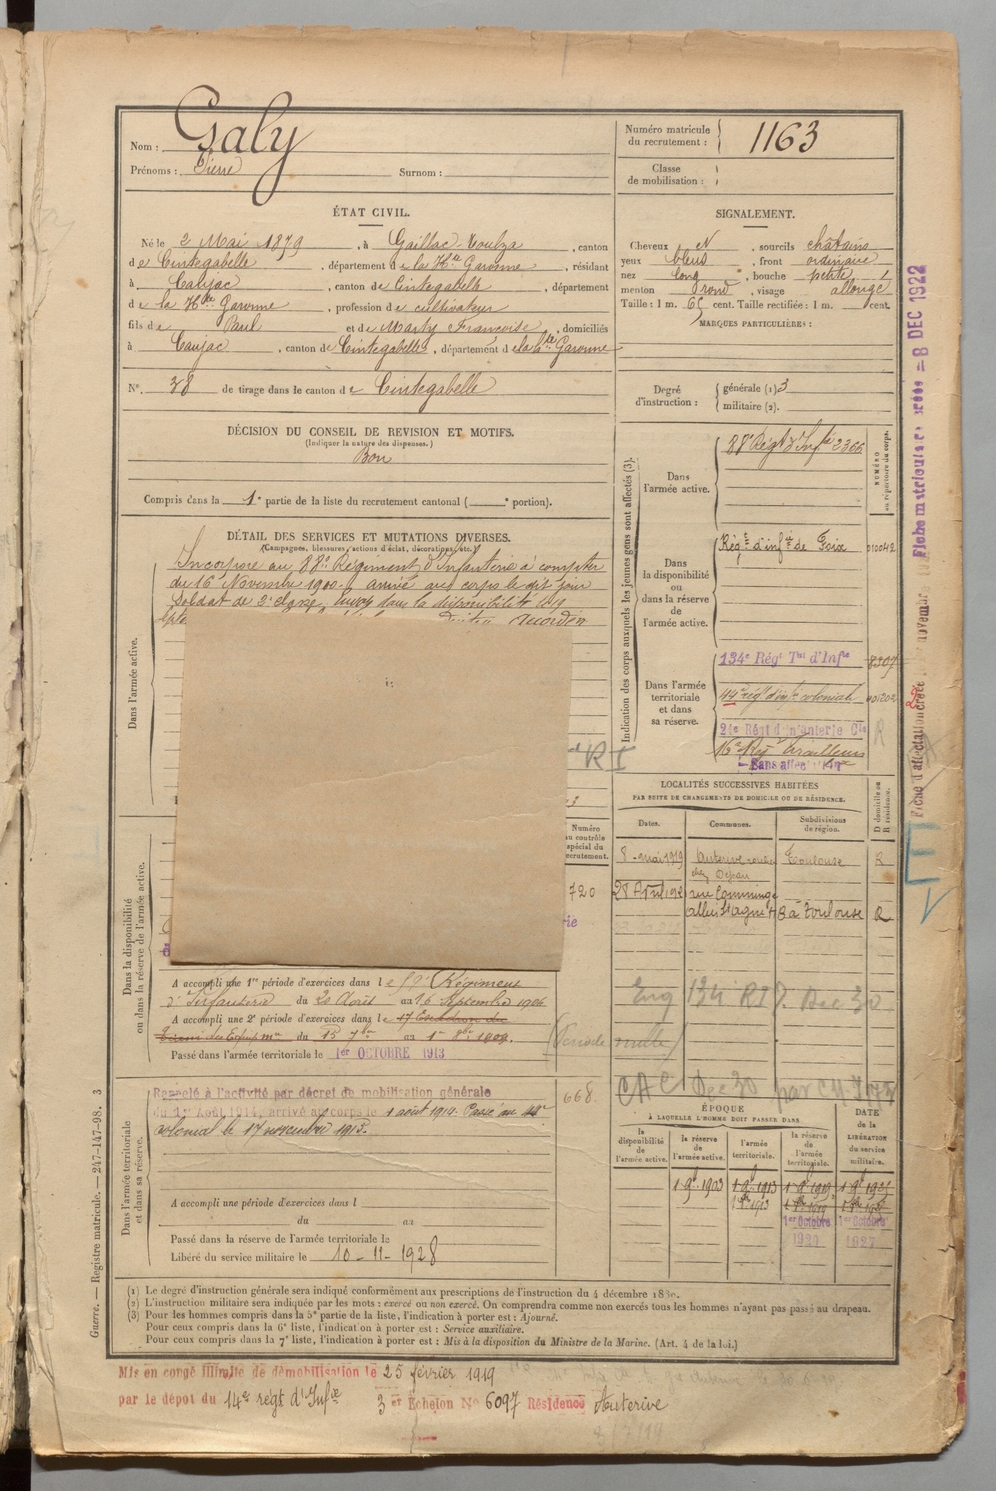 Nom : Galy
Prénoms : Pierre Surnom :
Numéro matricule du recrutement : 1163
Classe de mobilisation :
ÉTAT CIVIL.
Né le 2 Mai 1879, à Gaillac-Toulza, canton
de Cintegabelle, département de la Hte Garonne, résidant
à Caujac, canton de Cintegabelle, département
de la Hte Garonne, profession de cultivateur
fils de Paul et de Marty Françoise, domiciliés
à Caujac, canton de Cintegabelle, département de la Hte Garonne
N°. 38 de tirage dans le canton de Cintegabelle
SIGNALEMENT.
Cheveux N, sourcils châtains
yeux bleus, front ordinaire
nez long, bouche petite,
menton rond, visage allongé
Taille : 1 m. 65 cent. Taille rectifiée : 1 m. cent.
MARQUES PARTICULIÈRES :
Degré d'instruction : générale (1). 3
militaire (2).
DÉCISION DU CONSEIL DE REVISION ET MOTIFS.
(Indiquer la nature des dispenses.)
Bon
Compris dans la 1e partie de la liste du recrutement cantonal ( e portion).
DÉTAIL DES SERVICES ET MUTATIONS DIVERSES.
(Campagnes, blessures, actions d'éclat, décorations, etc.)
Dans l'armée active.
Incorporé au 88e Régiment d'Infanterie à compter
du 16 Novembre 1900. arrivé au corps le dit jour
Soldat de 2e classe, Envoyé dans la disponibilité le 19
Indication des corps auxquels les jeunes gens sont affectés (3).
NUMÉRO au répertoire du corps.
Dans l'armée active.
88e Régt d'Infie 2366
Dans la disponibilité ou dans la réserve de l'armée active.
Régt d'infie de Foix 010042
Dans l'armée territoriale et dans sa réserve.
134e Régt Tal d'Infie 8307
44e régt d'infie coloniale
24e Régt d'infanterie Cle R
16e Rgt Tirailleurs
Sans affectation
RI
LOCALITÉS SUCCESSIVES HABITÉES
PAR SUITE DE CHANGEMENTS DE DOMICILE OU DE RÉSIDENCE.
Dates. Communes. Subdivisions de région. D domicile ou R résidence.
8 mai 1919 Auterive Toulouse R
chez Dejean
28 Avril rue Comminge
allée St agne 48 à Toulouse R
Numéro au contrôle spécial du recrutement.
720
Dans la disponibilité ou dans la réserve de l'armée active.
A accompli une 1re période d'exercices dans le Régiment
d'Infanterie du 20 Août au 16 Septembre 1906
A accompli une 2e période d'exercices dans le 17 Escadron du
Train des Equip. mres du 15 7bre au 1er 8bre 1909.
Passé dans l'armée territoriale le 1er OCTOBRE 1913
134 RI Dec 30
CAC Dec 30
Dans l'armée territoriale et dans sa réserve.
Rappelé à l'activité par décret de mobilisation générale
du 1er Août 1914, arrivé au corps le 1 août 1914. Passé au 44e
colonial le 17 novembre 1915.
668.
A accompli une période d'exercices dans l
du au
Passé dans la réserve de l'armée territoriale le
Libéré du service militaire le 10-11-1928
ÉPOQUE
À LAQUELLE L'HOMME DOIT PASSER DANS
la disponibilité de l'armée active. la réserve de l'armée active. l'armée territoriale. la réserve de l'armée territoriale.
DATE de la LIBÉRATION du service militaire.
1 9b 1903 1 9b 1913 1 9b 1919 1 9b 1925
1 8bre 1913 1 8bre 1919
1er Octobre 1er Octobre
1920 1927
(1) Le degré d'instruction générale sera indiqué conformément aux prescriptions de l'instruction du 4 décembre 1889.
(2) L'instruction militaire sera indiquée par les mots : exercé ou non exercé. On comprendra comme non exercés tous les hommes n'ayant pas passé au drapeau.
(3) Pour les hommes compris dans la 5e partie de la liste, l'indication à porter est : Ajourné.
Pour ceux compris dans la 6e liste, l'indication à porter est : Service auxiliaire.
Pour ceux compris dans la 7e liste, l'indication à porter est : Mis à la disposition du Ministre de la Marine. (Art. 4 de la loi.)
Mis en congé illimité de démobilisation le 25 février 1919
par le dépot du 14e régt d'Infie 3er Echelon No 6097 Résidence Auterive
Guerre. — Registre matricule. — 247-147-98. 3
Fiche matriculaire créée = 8 DEC 1922